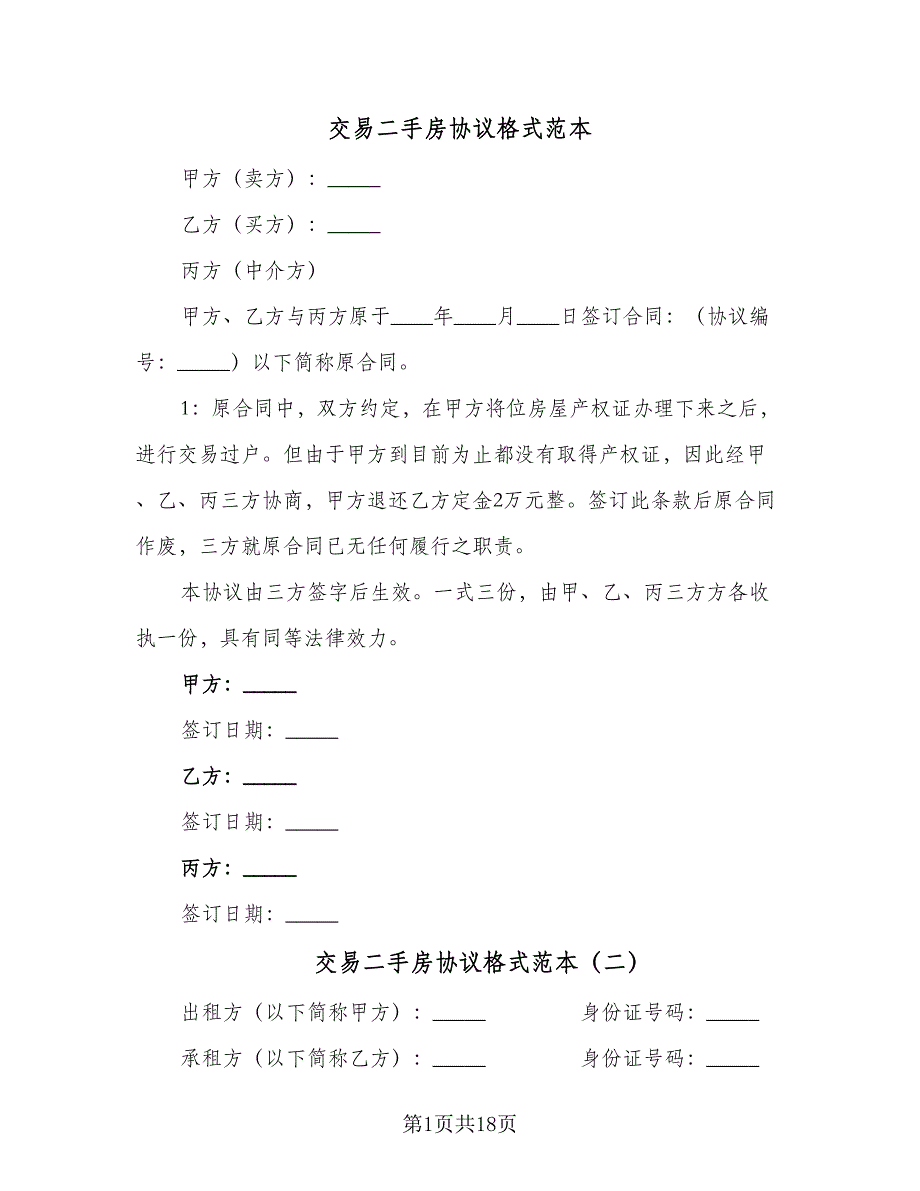 交易二手房协议格式范本
甲方（卖方）：_____
乙方（买方）：_____
丙方（中介方）
甲方、乙方与丙方原于____年____月____日签订合同：（协议编
号：_____）以下简称原合同。
1：原合同中，双方约定，在甲方将位房屋产权证办理下来之后，
进行交易过户。但由于甲方到目前为止都没有取得产权证，因此经甲
、乙、丙三方协商，甲方退还乙方定金2万元整。签订此条款后原合同
作废，三方就原合同已无任何履行之职责。
本协议由三方签字后生效。一式三份，由甲、乙、丙三方方各收
执一份，具有同等法律效力。
甲方：_____
签订日期：_____
乙方：_____
签订日期：_____
丙方：_____
签订日期：_____
交易二手房协议格式范本（二）
出租方（以下简称甲方）：_____ 身份证号码：_____
承租方（以下简称乙方）：_____ 身份证号码：_____
第1页共18页